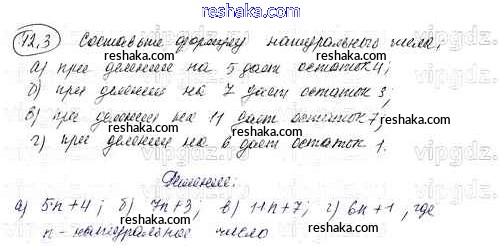 reshaka.com
12.3 Составьте формулу натурального числа,
а) при делении на 5 дает остаток 4;
б) при делении на 7 дает остаток 3;
в) при делении на 11 дает остаток 7;
г) при делении на 6 дает остаток 1.
Решение:
а) 5n+4; б) 7n+3; в) 11n+7; г) 6n+1, где
n - натуральное число
reshaka.com